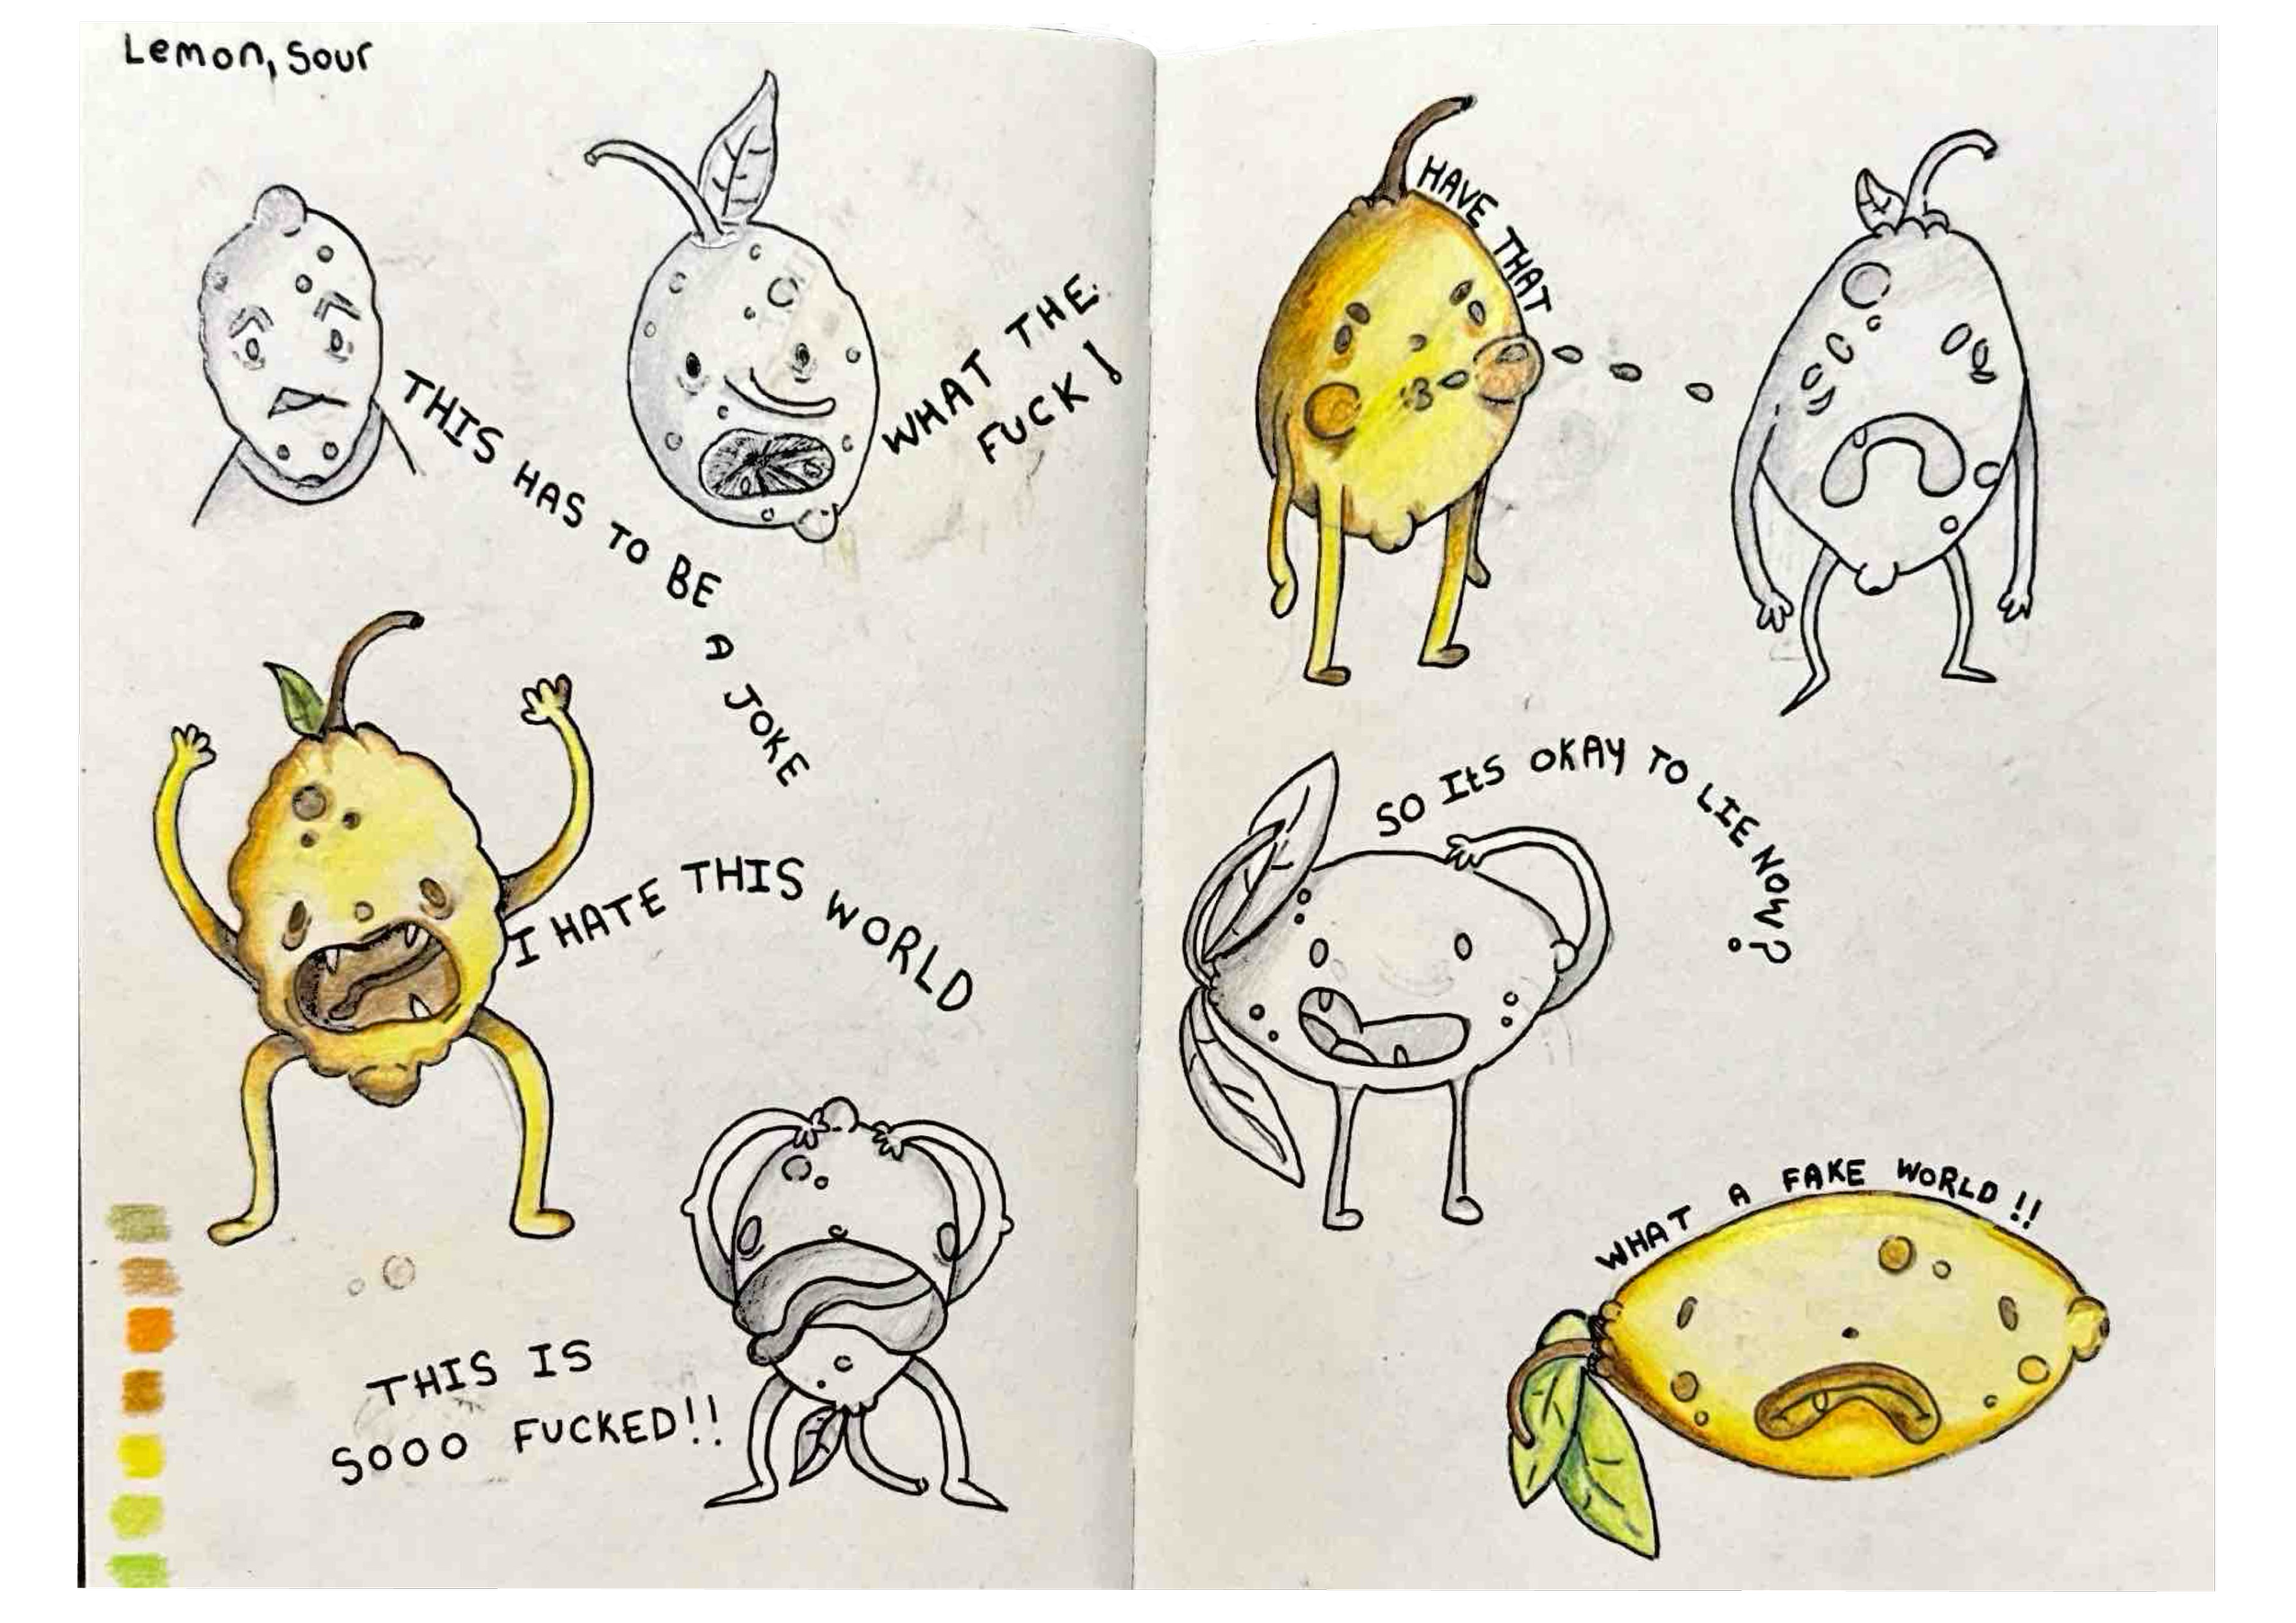 Lemon, Sour
THIS HAS TO BE A JOKE
WHAT THE
FUCK!
I HATE THIS WORLD
THIS IS
SOOO FUCKED!!
HAVE THAT
SO ItS OKAY TO LIE NOW?
WHAT A FAKE WORLD!!